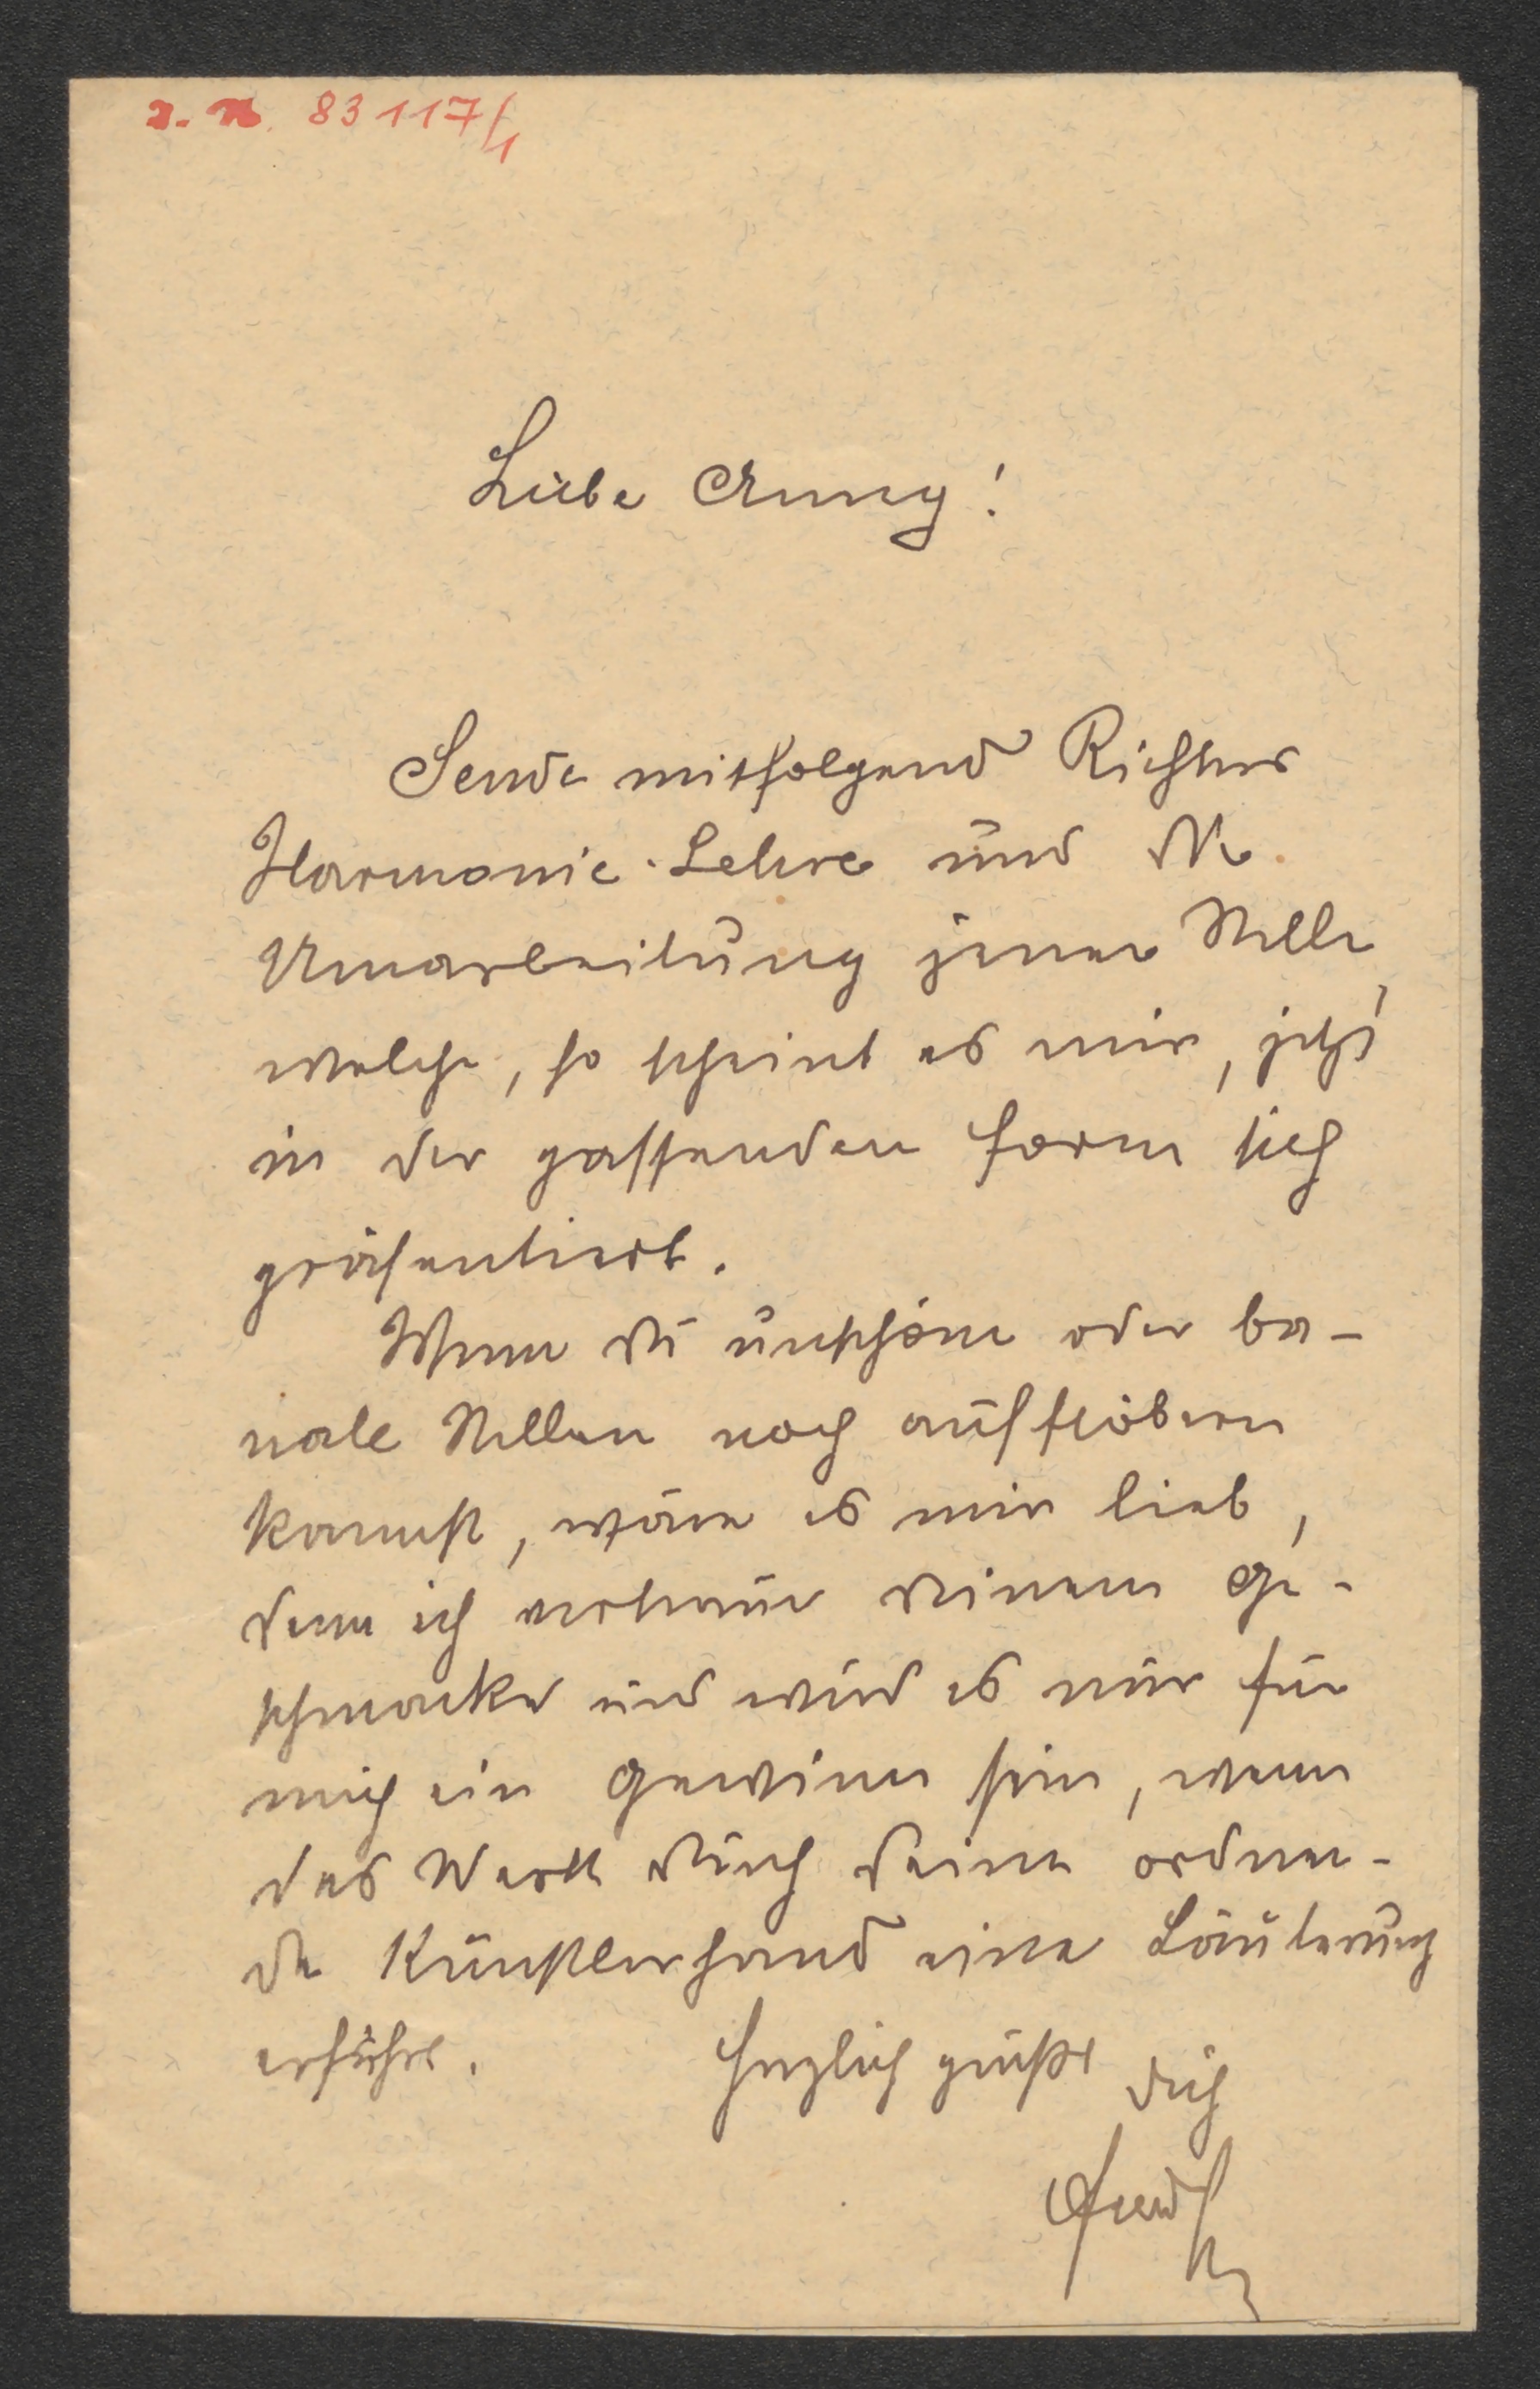 I. N. 83117/1
Liebe Anny!
Sende mitfolgend Richters
Harmonie-Lehre und die
Umarbeitung jener Stelle,
welche, so scheint es mir, jetzt
in der passenden Form sich
präsentiert.
Wenn Du unschöne oder ba-
nale Stellen noch aufstöbern
kannst, wäre es mir lieb,
denn ich vertraue Deinem Ge-
schmacke und wird es nur für
mich ein Gewinn sein, wenn
das Werk durch Deine ordnen-
de Künstlerhand eine Läuterung
erführt. Herzlich grüßt Dich